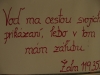 Voď ma cestou svojich
prikázaní, lebo v tom
mám záľubu.
Žalm 119,35